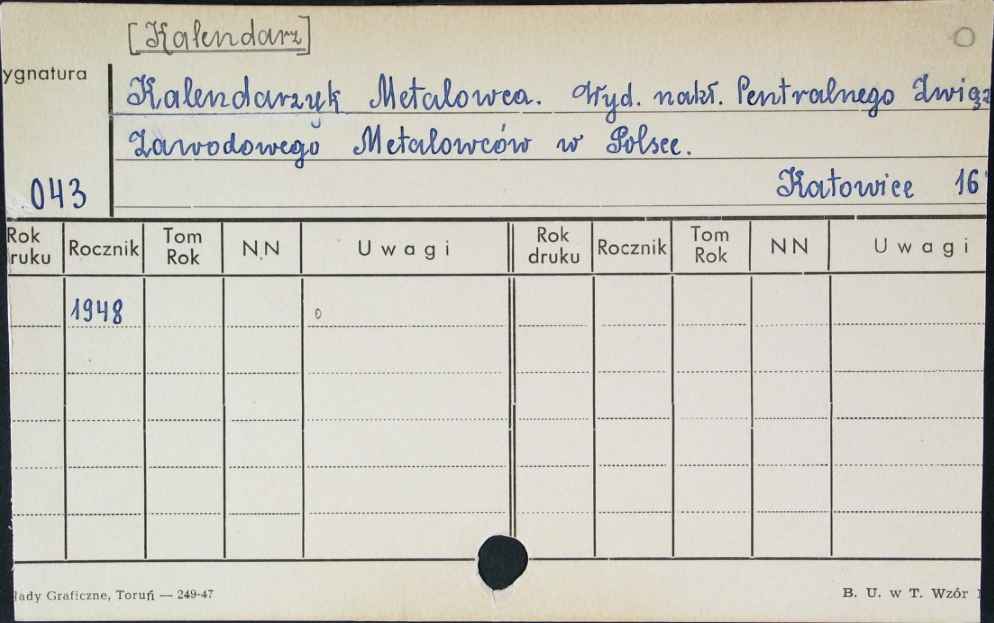 [Kalendarz]
ygnatura
Kalendarzyk Metalowca. Wyd. nakł. Centralnego Związ
Zawodowego Metalowców w Polsce.
043
Katowice 16
Rok
ruku
Rocznik
Tom
Rok
N.N
Uwagi
Rok
druku
Rocznik
Tom
Rok
NN
Uwagi
1948
o
łady Graficzne, Toruń — 249-47
B. U. w T. Wzór